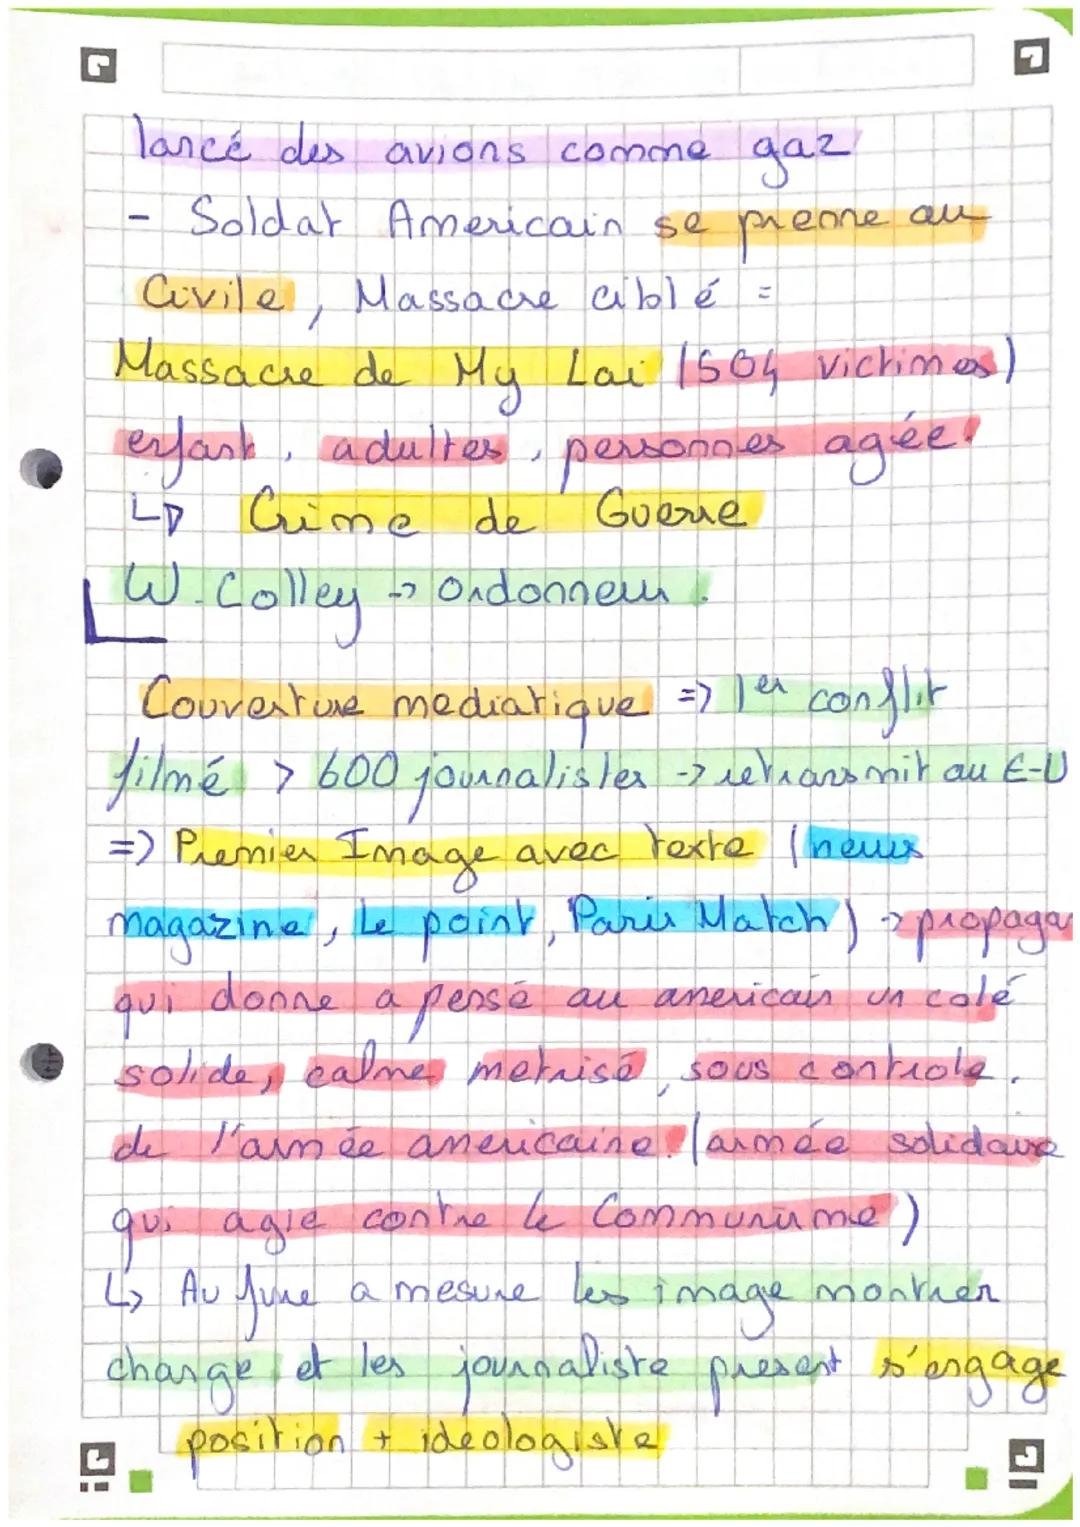 lancé des avions comme gaz
- Soldat Americain se prenne au
Civile, Massacre ciblé =
Massacre de My Lai (504 victimes)
enfant, adultes, personnes agée.
↳ Crime de Guerre
W. Colley → Ordonneur.
Couverture mediatique => 1er conflit
filmé > 600 journalistes → retransmit au E-U
=> Premier Image avec texte (news
magazine, le point, Paris Match) → propagan
qui donne a pensé au americain un coté
solide, calme metrisé, sous controle.
de l'armée americaine. (armée solidaire
qui agie contre le Communisme)
↳ Au fure a mesure les image montrer
change et les journaliste present s'engage
position + idéologiste